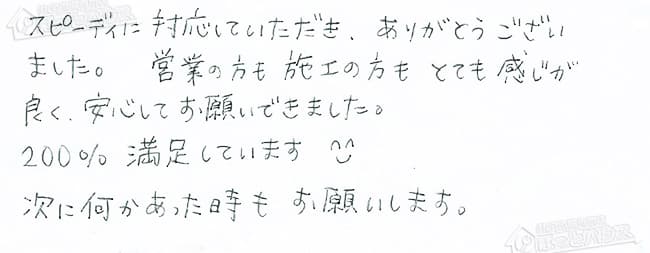 スピーディに対応していただき、ありがとうござい
ました。 営業の方も施工の方もとても感じが
良く、安心してお願いできました。
200% 満足しています
次に何かあった時もお願いします。